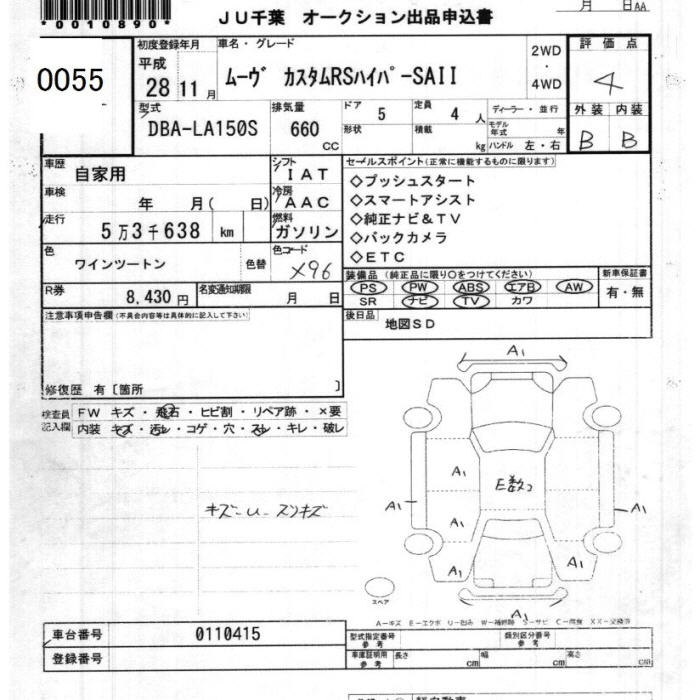 *0010890*
JU千葉 オークション出品申込書
月 日AA
0055
初度登録年月 車名・グレード
平成
28 11月
ムーヴ カスタムRSハイパーSAII
2WD
・
4WD
評価点
4
型式
DBA-LA150S
排気量
660
CC
ドア 5 定員 4 人
形状 積載 kg
ディーラー・並行
モデル年式 年
ハンドル 左・右
外装 内装
B B
車歴 自家用
シフト IAT
車検 年 月( 日)
冷房 AAC
走行 5万3千638 km
燃料 ガソリン
色 ワインツートン 色替
色コード X96
R券 8,430円
名変通知期限 月 日
セールスポイント(正常に機能するものに限ります)
◇プッシュスタート
◇スマートアシスト
◇純正ナビ&TV
◇バックカメラ
◇ETC
装備品(純正品に限り○をつけてください)
PS PW ABS エアB AW
SR ナビ TV カワ
新車保証書
有・無
後日品 地図SD
注意事項申告欄(不具合内容等は具体的に記入して下さい)
修復歴 有[箇所 ]
検査員記入欄
FW キズ・飛石・ヒビ割・リペア跡・×要
内装・キズ・汚レ・コゲ・穴・スレ・キレ・破レ
キズ-U-スリキズ
A1
A1
E数コ
A1
A1
A1
A1
A1
A1
スペア
A1
A-キズ E-エクボ U-凹み W-補修跡 S-サビ C-腐食 XX-交換済
車台番号 0110415
登録番号
型式指定番号 参考
類別区分番号 参考
車庫証明用 参考 長さ cm 幅 cm 高さ cm
軽自動車